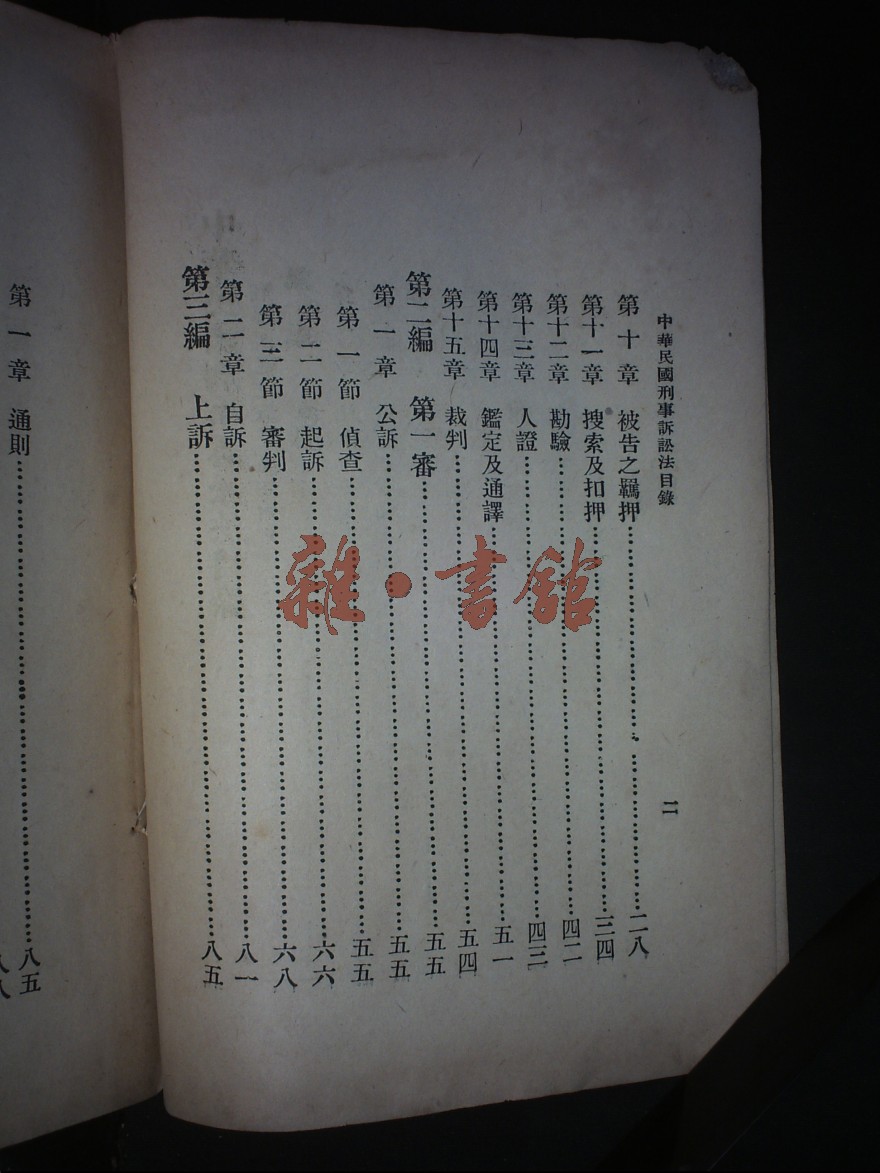 中華民國刑事訴訟法目錄
二
第十章 被告之羈押……二八
第十一章 搜索及扣押……三四
第十二章 勘驗……四二
第十三章 人證……四三
第十四章 鑑定及通譯……五一
第十五章 裁判……五四
第二編 第一審……五五
第一章 公訴……五五
第一節 偵查……五五
第二節 起訴……六六
第三節 審判……六八
第二章 自訴……八一
第三編 上訴……八五
第一章 通則……八五
八八
雜·書館